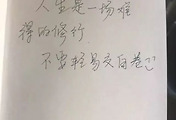 人生是一场难
得的修行
不要轻易交白卷